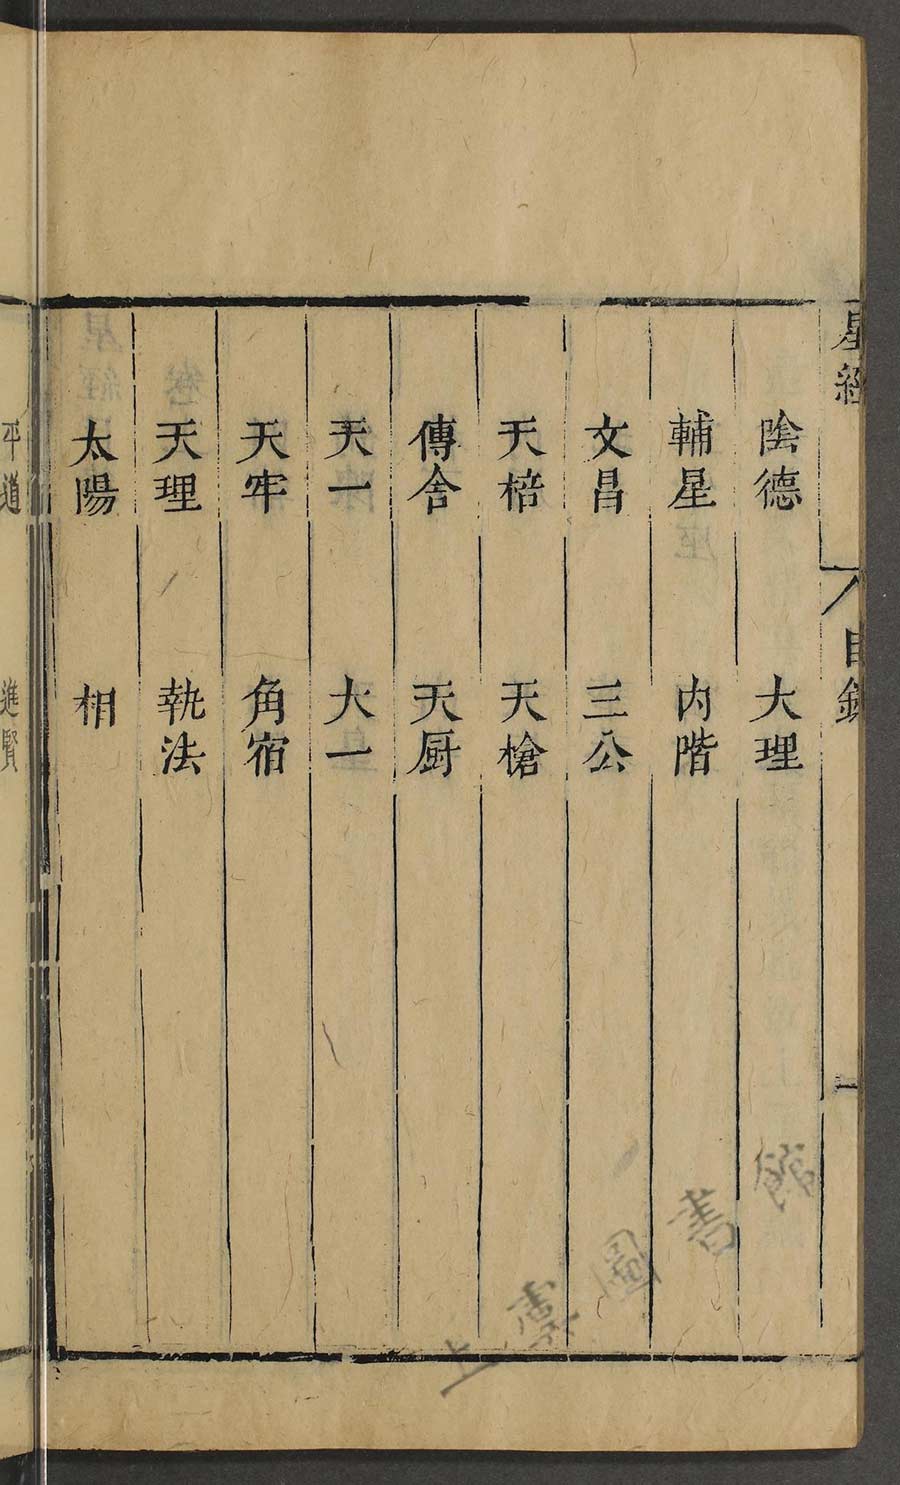 星經 目錄 一
陰德 大理
輔星 內階
文昌 三公
天棓 天槍
傳舍 天厨
天一 大一
天牢 角宿
天理 執法
太陽 相
平道 進賢
上虞圖書館